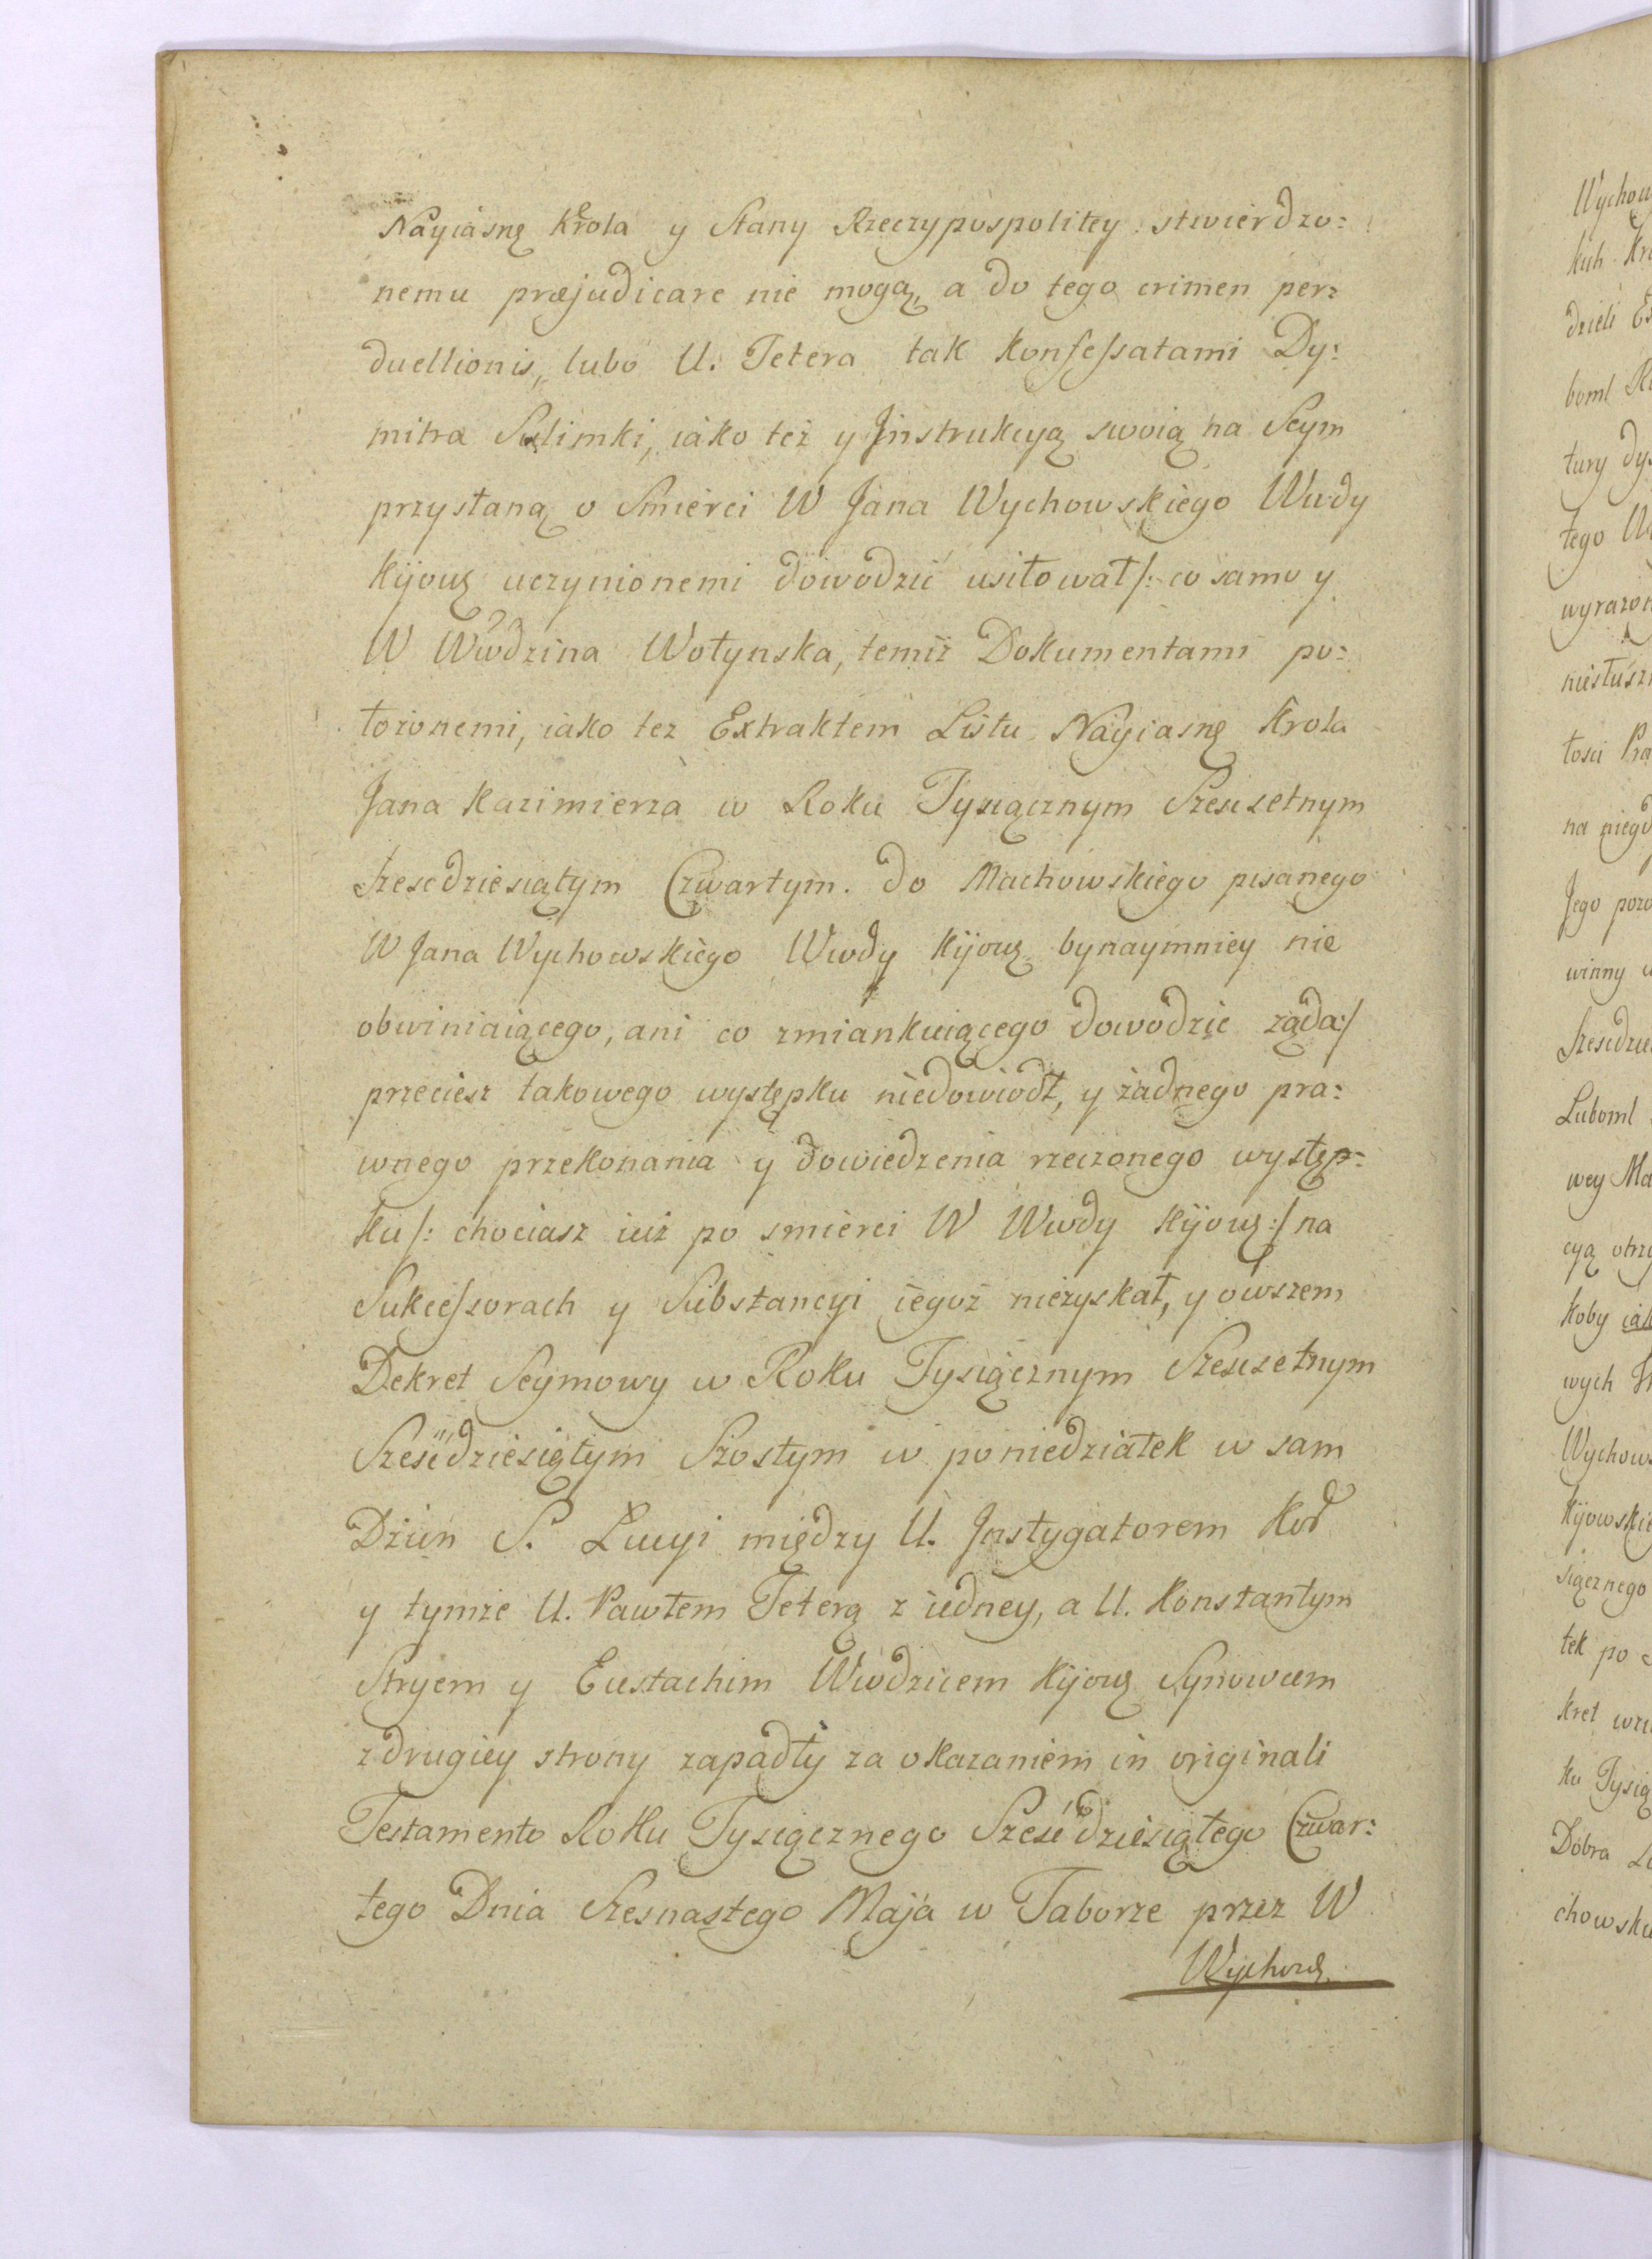 Nayiasnę Krola y Stany Rzeczypospolitey stwierdzo:
nemu præjudicare nie mogą, a do tego crimen per:
duellionis, lubo U. Tetera tak Konfessatami Dy:
mitra Sulimki, iako też y Jnstrukcyą swoią na Seym
przysłaną o Smierci W Jana Wychowskiego Wwdy
Kijowg uczynionemi dowodzić usiłował /: co samo y
W Wwdzina Wołynska, temiż Dokumentami po:
łożonemi, iako tez Extraktem Listu Nayiasnę Krola
Jana Kazimierza w Roku Tysiącznym Szescsetnym
szescdziesiątym Czwartym. do Machowskiego pisanego
W Jana Wychowskiego Wwdy Kijowg bynaymniey nie
obwiniaiącego, ani co zmiankuiącego dowodzic ząda:/
przeciesz takowego występku niedowiodł, y żadnego pra:
wnego przekonania y dowiedzenia rzeczonego występ:
ku /: chociasz iuż po smierci W Wwdy Kijowg :/ na
Sukcessorach y Substancyi iegoż niezyskał, y owszem
Dekret Seymowy w Roku Tysiącznym Szescsetnym
Szescdziesiątym Szostym w poniedziałek w sam
Dzien S. Łucyi między U. Jnstygatorem Kor
y tymze U. Pawłem Teterą z iedney, a U. Konstantym
Stryem y Eustachim Wwdzicem Kijowg Synowcem
z drugiey strony zapadły za okazaniem in originali
Testamento Roku Tysiącznego Szescdziesiątego Czwar:
tego Dnia Szesnastego Maja w Taborze przez W
Wychowg
Wychow
kuh Kro
dzieli
boml
tury dy
tego
wyrazon
niesłusz
łosci Pra
na niego
Jego pozo
winny
Szescdzie
Luboml
wey Ma
cyą otrzy
koby iak
wych
Wychows
Kijowskie
siącznego
tek po
kret
ku Tysią
Dobra
chowski